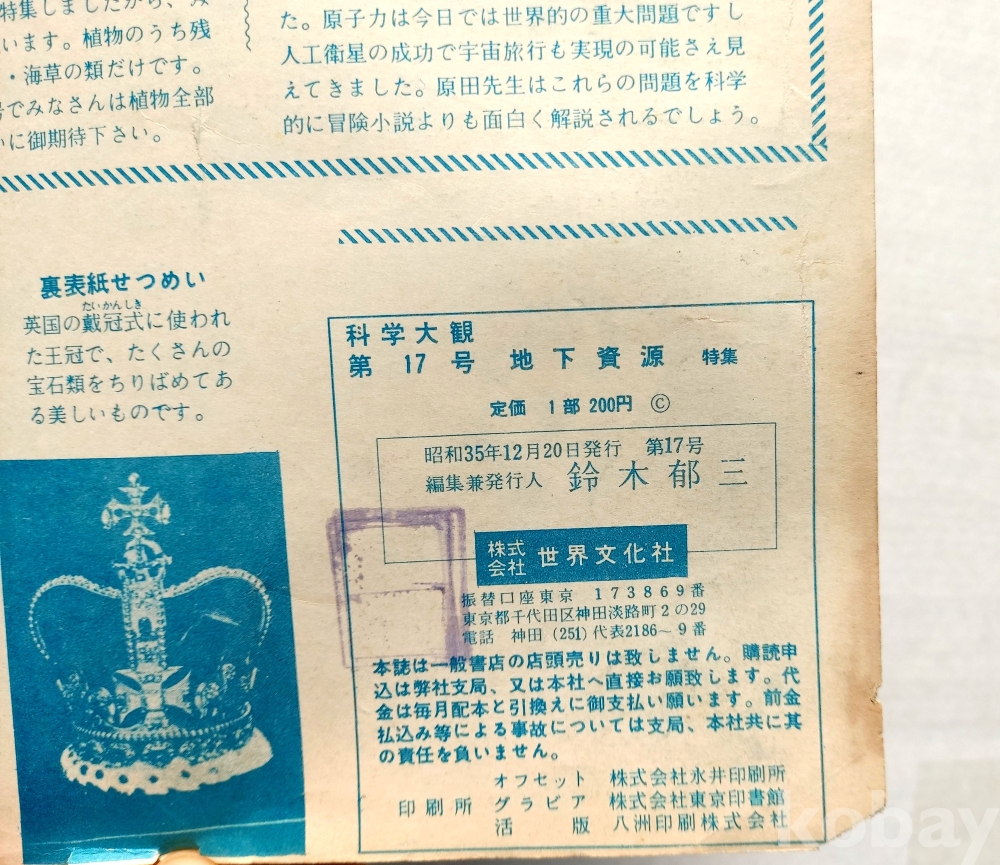 特集しましたから、
います。植物のうち残
・海草の類だけです。
号でみなさんは植物全部
いに御期待下さい。
た。原子力は今日では世界的の重大問題ですし
人工衛星の成功で宇宙旅行も実現の可能さえ見
えてきました。原田先生はこれらの問題を科学
的に冒険小説よりも面白く解説されるでしょう。
裏表紙せつめい
たいかんしき
英国の戴冠式に使われ
た王冠で、たくさんの
宝石類をちりばめてあ
る美しいものです。
科学大観
第17号 地下資源 特集
定価 1部 200円 ©
昭和35年12月20日発行 第17号
編集兼発行人 鈴木郁三
株式会社 世界文化社
振替口座東京 173869番
東京都千代田区神田淡路町2の29
電話 神田(251)代表2186~9番
本誌は一般書店の店頭売りは致しません。購読申
込は弊社支局、又は本社へ直接お願致します。代
金は毎月配本と引換えに御支払い願います。前金
払込み等による事故については支局、本社共に其
の責任を負いません。
オフセット 株式会社永井印刷所
印刷所 グラビア 株式会社東京印書館
活版 八洲印刷株式会社
kobay